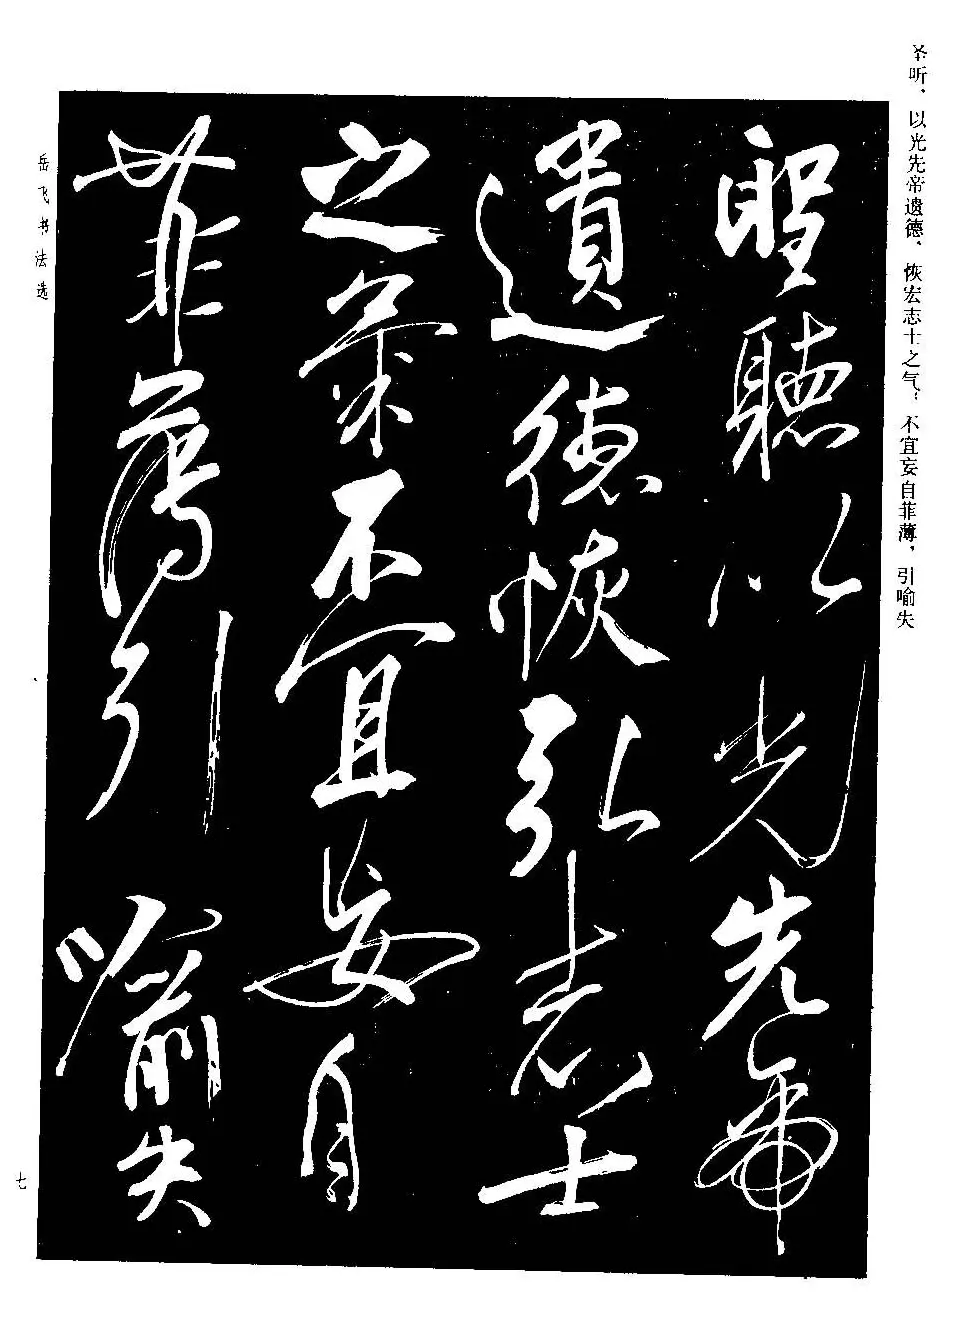 圣听，以光先帝遗德，恢宏志士之气；不宜妄自菲薄，引喻失
聖聽以光先帝
遺德恢弘志士
之氣不宜妄自
菲薄引喻失
岳飞书法选
七